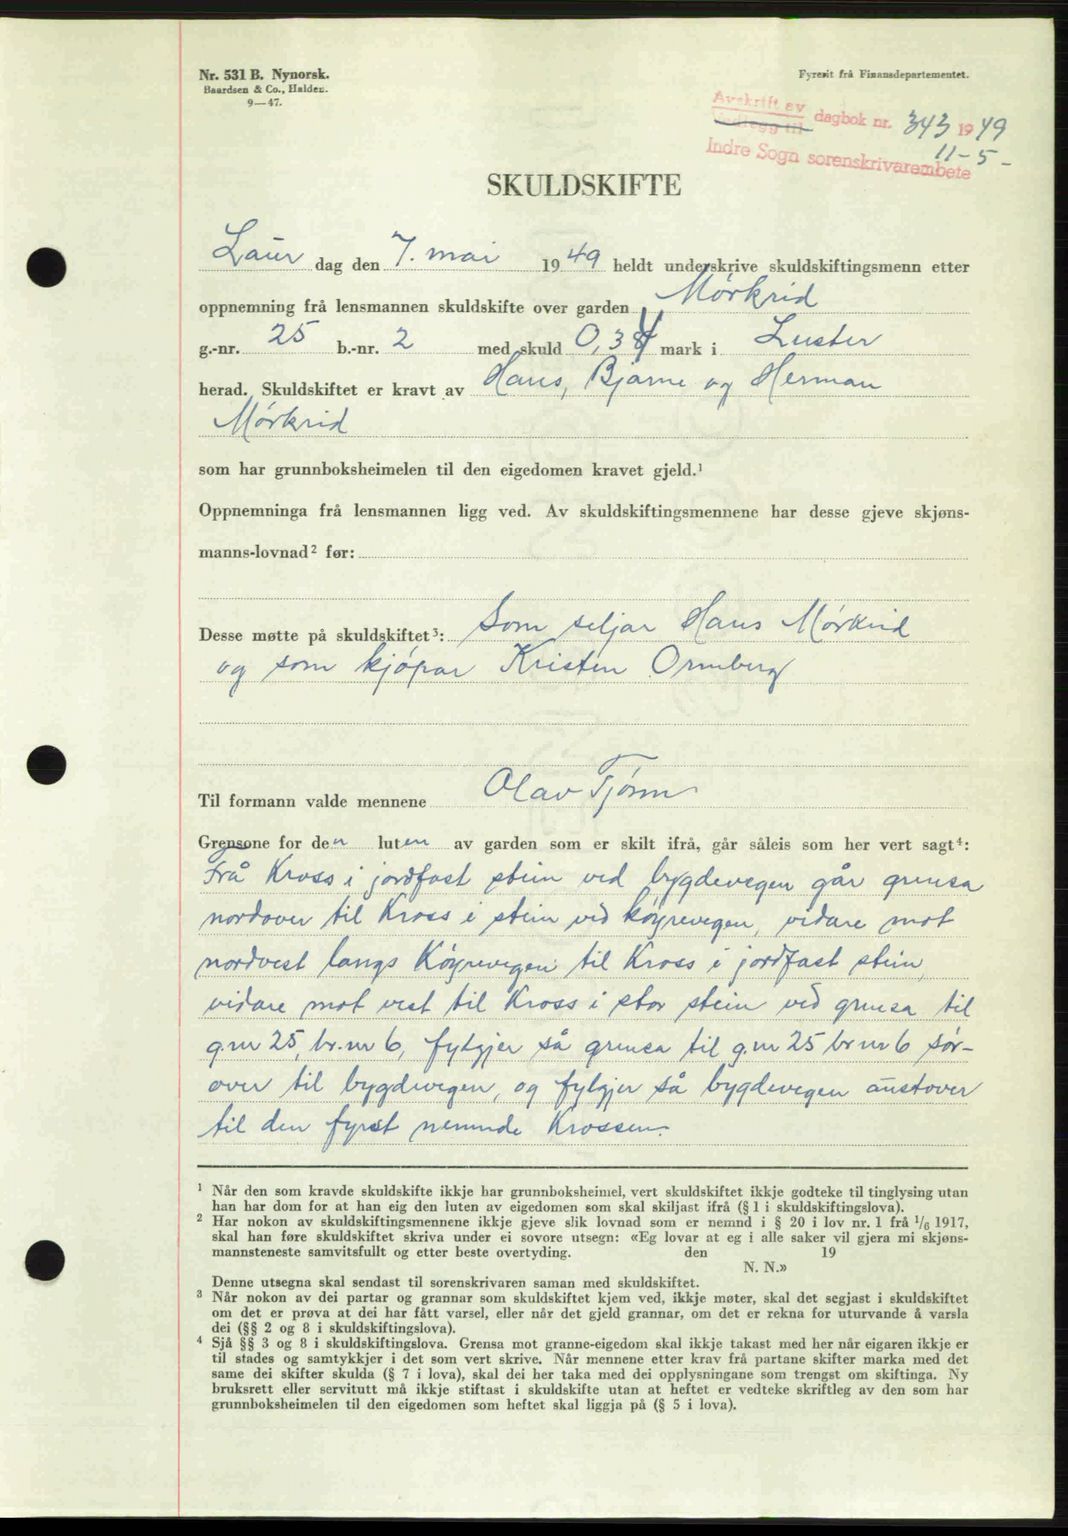 Nr. 531 B. Nynorsk.
Baardsen & Co., Halden.
9—47.
Fyresit frå Finansdepartementet.
Avskrift av
Vedlegg til
dagbok nr. 343 1949
11-5-
Indre Sogn sorenskrivarembete
SKULDSKIFTE
Laur dag den 7. mai 1949 heldt underskrive skuldskiftingsmenn etter
oppnemning frå lensmannen skuldskifte over garden Mørkrid
g.-nr. 25 b.-nr. 2 med skuld 0,38 mark i Luster
herad. Skuldskiftet er kravt av Hans, Bjarne og Herman
Mørkrid
som har grunnboksheimelen til den eigedomen kravet gjeld.¹
Oppnemninga frå lensmannen ligg ved. Av skuldskiftingsmennene har desse gjeve skjøns-
manns-lovnad² før:
Desse møtte på skuldskiftet³: Som seljar Hans Mørkrid
og som kjøpar Kristen Ormberg
Til formann valde mennene Olav Tjørn
Grensone for den luten av garden som er skilt ifrå, går såleis som her vert sagt⁴:
Frå Kross i jordfast stein ved bygdevegen går grensa
nordover til Kross i stein ved køyrevegen, vidare mot
nordvest langs Køyrevegen til Kross i jordfast stein,
vidare mot vest til Kross i stor stein ved grensa til
g.nr 25, br.nr 6, fylgjer så grensa til g.nr 25 br nr 6 sør-
over til bygdevegen, og fylgjer så bygdevegen austover
til den fyrst nemnde Krossen.
¹ Når den som kravde skuldskifte ikkje har grunnboksheimel, vert skuldskiftet ikkje godteke til tinglysing utan
han har dom for at han eig den luten av eigedomen som skal skiljast ifrå (§ 1 i skuldskiftingslova).
² Har nokon av skuldskiftingsmennene ikkje gjeve slik lovnad som er nemnd i § 20 i lov nr. 1 frå 1/6 1917,
skal han føre skuldskiftet skriva under ei sovore utsegn: «Eg lovar at eg i alle saker vil gjera mi skjøns-
mannsteneste samvitsfullt og etter beste overtyding. den 19
N. N.»
Denne utsegna skal sendast til sorenskrivaren saman med skuldskiftet.
³ Når nokon av dei partar og grannar som skuldskiftet kjem ved, ikkje møter, skal det segjast i skuldskiftet
om det er prøva at dei har fått varsel, eller når det gjeld grannar, om det er rekna for uturvande å varsla
dei (§§ 2 og 8 i skuldskiftingslova).
⁴ Sjå §§ 3 og 8 i skuldskiftingslova. Grensa mot granne-eigedom skal ikkje takast med her når eigaren ikkje er
til stades og samtykkjer i det som vert skrive. Når mennene etter krav frå partane skifter marka med det
same dei skifter skulda (§ 7 i lova), skal dei her taka med dei opplysningane som trengst om skiftinga. Ny
bruksrett eller servitutt må ikkje stiftast i skuldskifte utan at heftet er vedteke skriftleg av den som har
grunnboksheimelen til den eigedomen som heftet skal liggja på (§ 5 i lova).